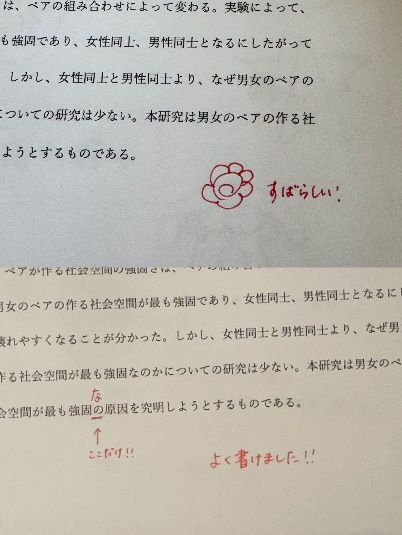 は、ペアの組み合わせによって変わる。実験によって、
も強固であり、女性同士、男性同士となるにしたがって
しかし、女性同士と男性同士より、なぜ男女のペアの
についての研究は少ない。本研究は男女のペアの作る社
ようとするものである。
すばらしい!
ペアが作る社会空間の強固さは、ペアの組み合
男女のペアの作る社会空間が最も強固であり、女性同士、男性同士となるに
壊れやすくなることが分かった。しかし、女性同士と男性同士より、なぜ男
作る社会空間が最も強固なのかについての研究は少ない。本研究は男女のペ
な
会空間が最も強固の原因を究明しようとするものである。
ここだけ!!
よく書けました!!